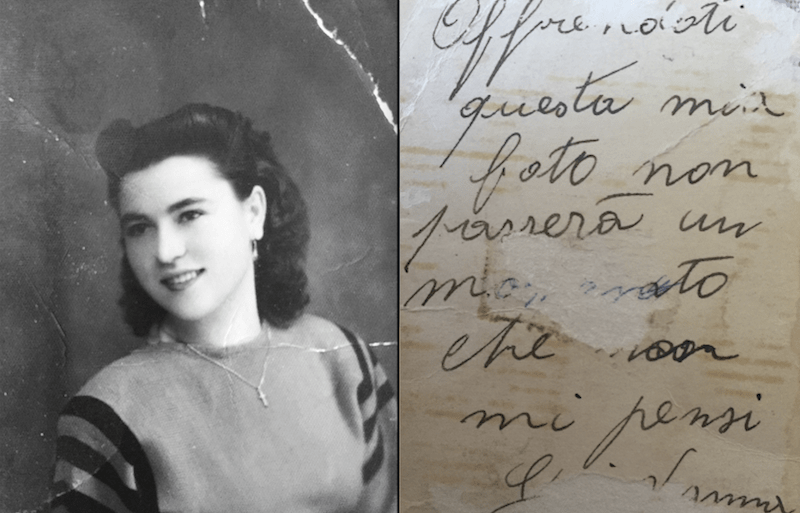 Offrendoti
questa mia
foto non
passerà un
momento
che non
mi pensi